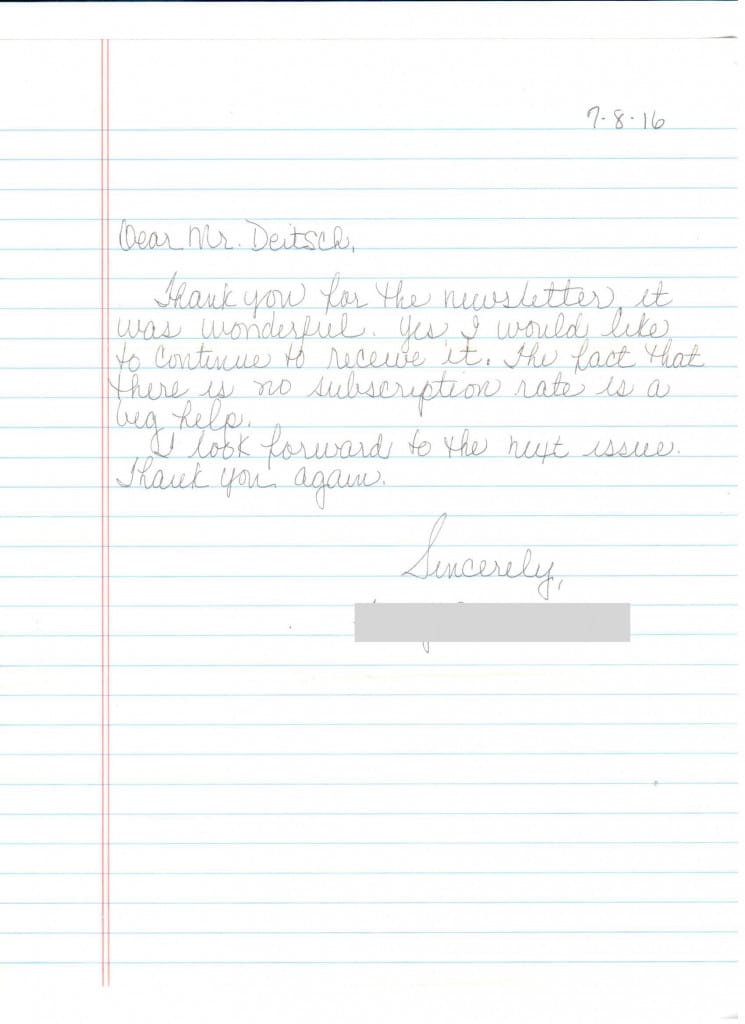 7-8-16
Dear Mr. Deitsch,
Thank you for the newsletter, it
was wonderful. Yes, I would like
to continue to receive it. The fact that
there is no subscription rate is a
big help.
I look forward to the next issue.
Thank you again.
Sincerely,